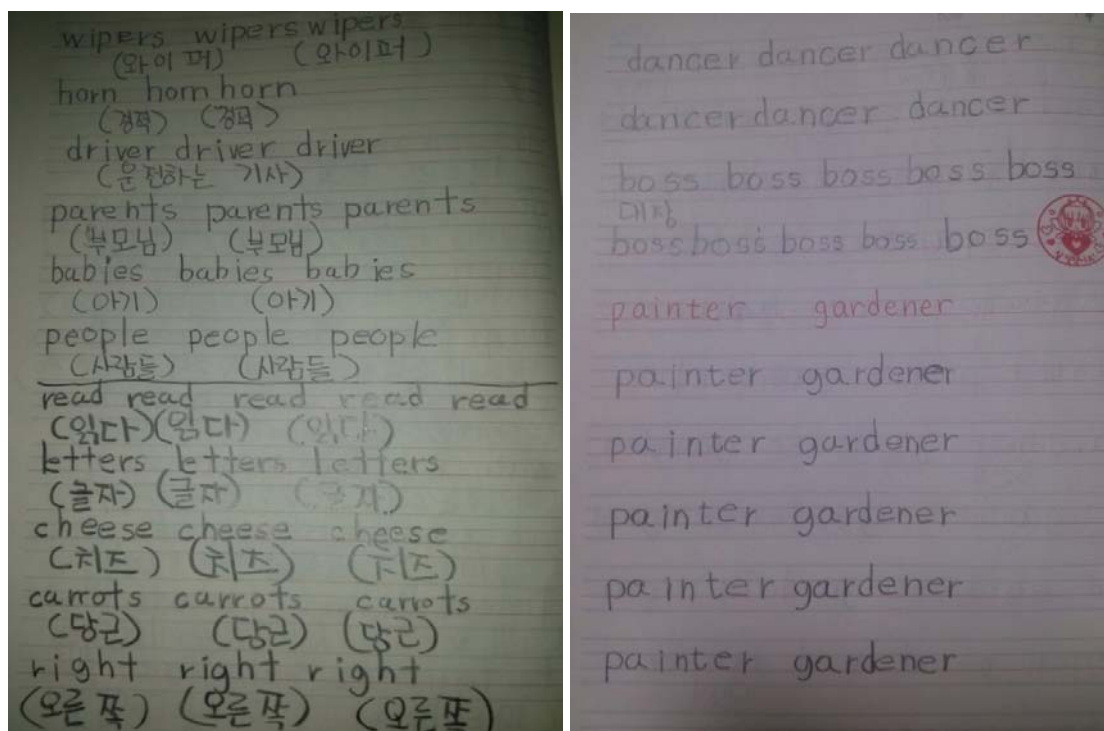 wipers wipers wipers
(와이퍼) (와이퍼)
horn horn horn
(경적) (경적)
driver driver driver
(운전하는 기사)
parents parents parents
(부모님) (부모님)
babies babies babies
(아기) (아기)
people people people
(사람들) (사람들)
read read read read read
(읽다) (읽다) (읽다)
letters letters letters
(글자) (글자) (글자)
cheese cheese cheese
(치즈) (치즈) (치즈)
carrots carrots carrots
(당근) (당근) (당근)
right right right
(오른쪽) (오른쪽) (오른쪽)
dancer dancer dancer
dancer dancer dancer
boss boss boss boss boss
대장
boss boss boss boss boss
painter gardener
painter gardener
painter gardener
painter gardener
painter gardener
painter gardener